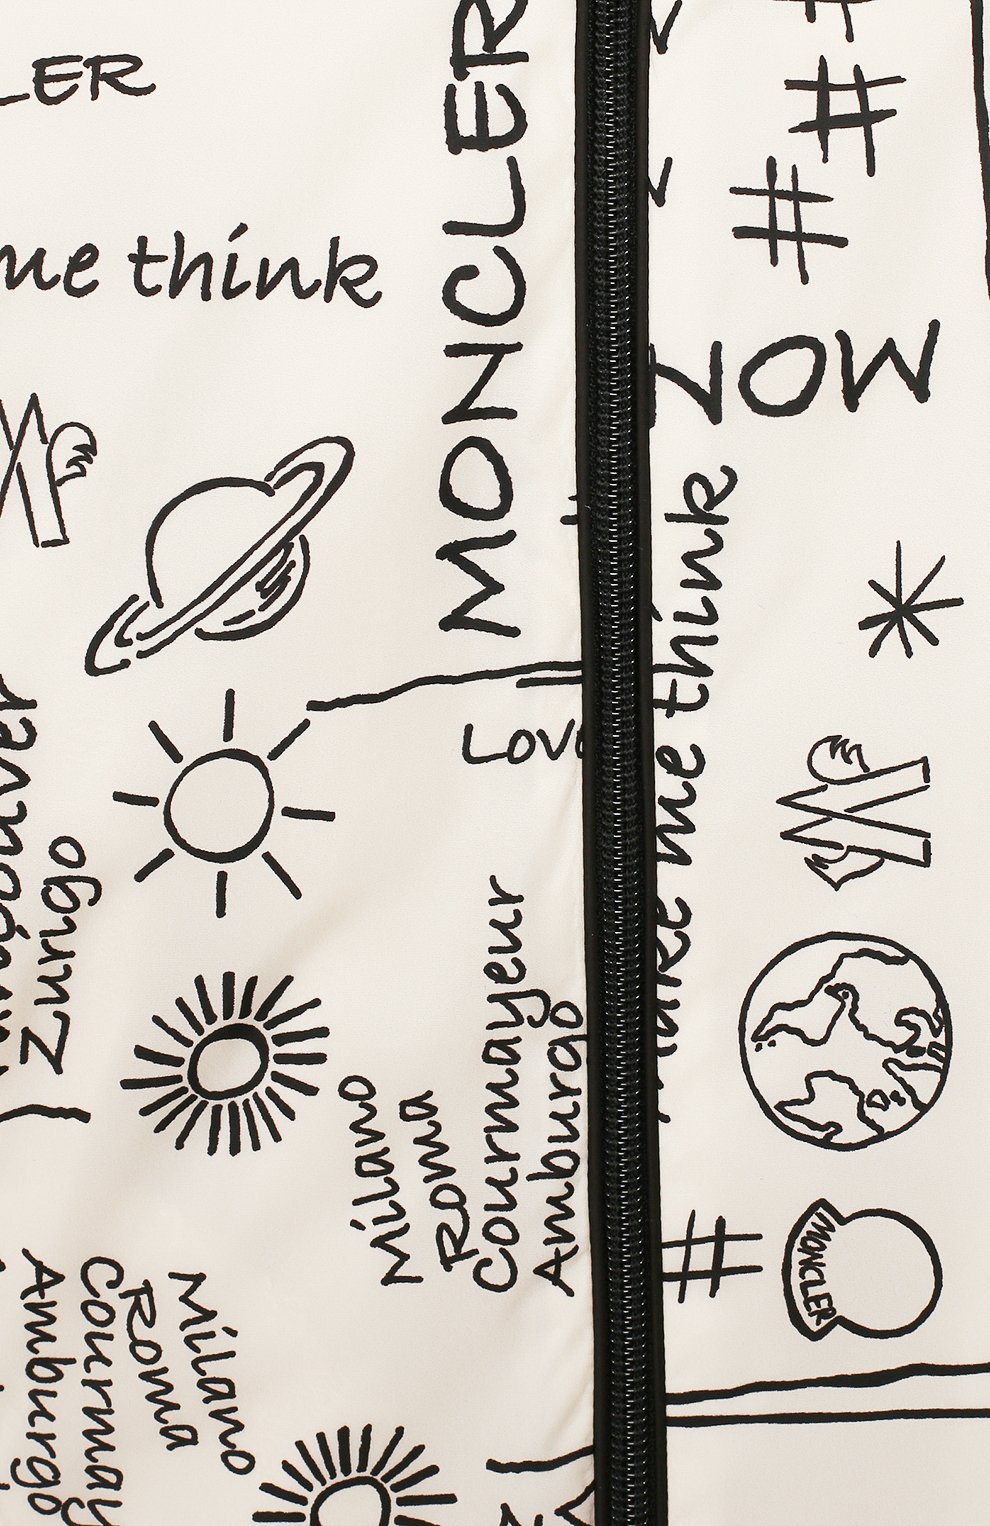 LER
me think
MONCLER
# #
#
MO
make me think
Lov
Zurigo
Milano
Roma
Courmayeur
Amburgo
#
MONCLER
Milano
Roma
Courmay
Amburgo